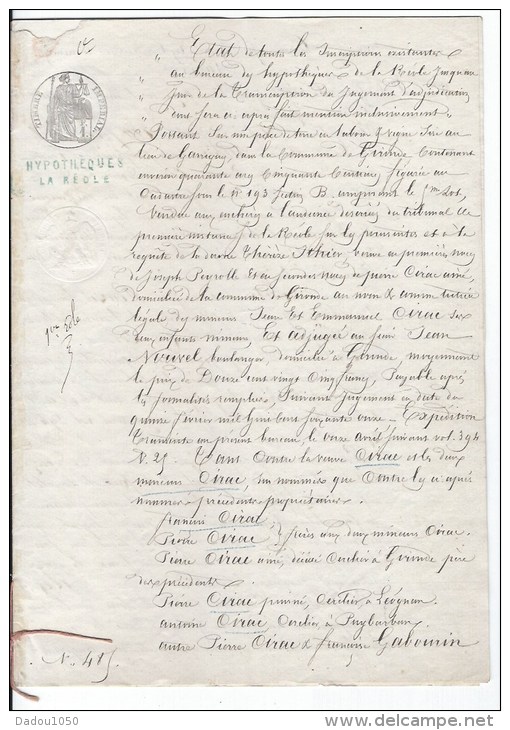 TIMBRE IMPERIAL
HYPOTHEQUES
LA RÉOLE
Etat de toutes les Inscriptions existantes
au bureau des hypothèques de la Réole Jusqu'au
Jour de la Transcription du Jugement d'adjudication
dont sera ci après fait mention inclusivement
Portant Sur une pièce de terre en labour & vigne Sise au
lieu de Garrigey dans la Commune de Gironde Contenant
environ quarante ares Cinquante Centiares figurée au
Cadastre Sous le N° 193 Section B, comprenant le 1er Lot,
Vendue aux enchères à l'audience des criées du tribunal de
première instance de la Réole sur les poursuites et à la
requête de la dame Thérèse Ithier, veuve en premières noces
de Joseph Peyrolle Et en Secondes noces de pierre Cirac aîné,
domiciliée de la commune de Gironde au nom & comme tutrice
légale des mineurs Jean Et Emmanuel Cirac Ses
deux enfants mineurs, Et adjugée au sieur Jean
Nouvel boulanger, domicilié à Gironde, moyennant
le prix de Douze cent vingt Cinq francs, Payable après
les formalités remplies, Suivant Jugement en date du
quinze février mil huit cent soixante onze - Expédition
Transcrite au présent bureau, le onze avril suivant vol. 394
N. 25. Tant Contre la veuve Cirac et les deux
mineurs Cirac, Sus nommés que Contre les ci après
nommés précédents propriétaires.
1er rôle
françois Cirac
Pierre Cirac } frères aux deux mineurs Cirac.
Pierre Cirac aîné, décédé Cerclier à Gironde père
des précédents.
Pierre Cirac puiné, Cerclier, à Léognan.
antoine Cirac Cerclier, à Puybarban
autre Pierre Cirac & françoise Gabourin
N. 415
Dadou1050
delcampe.net